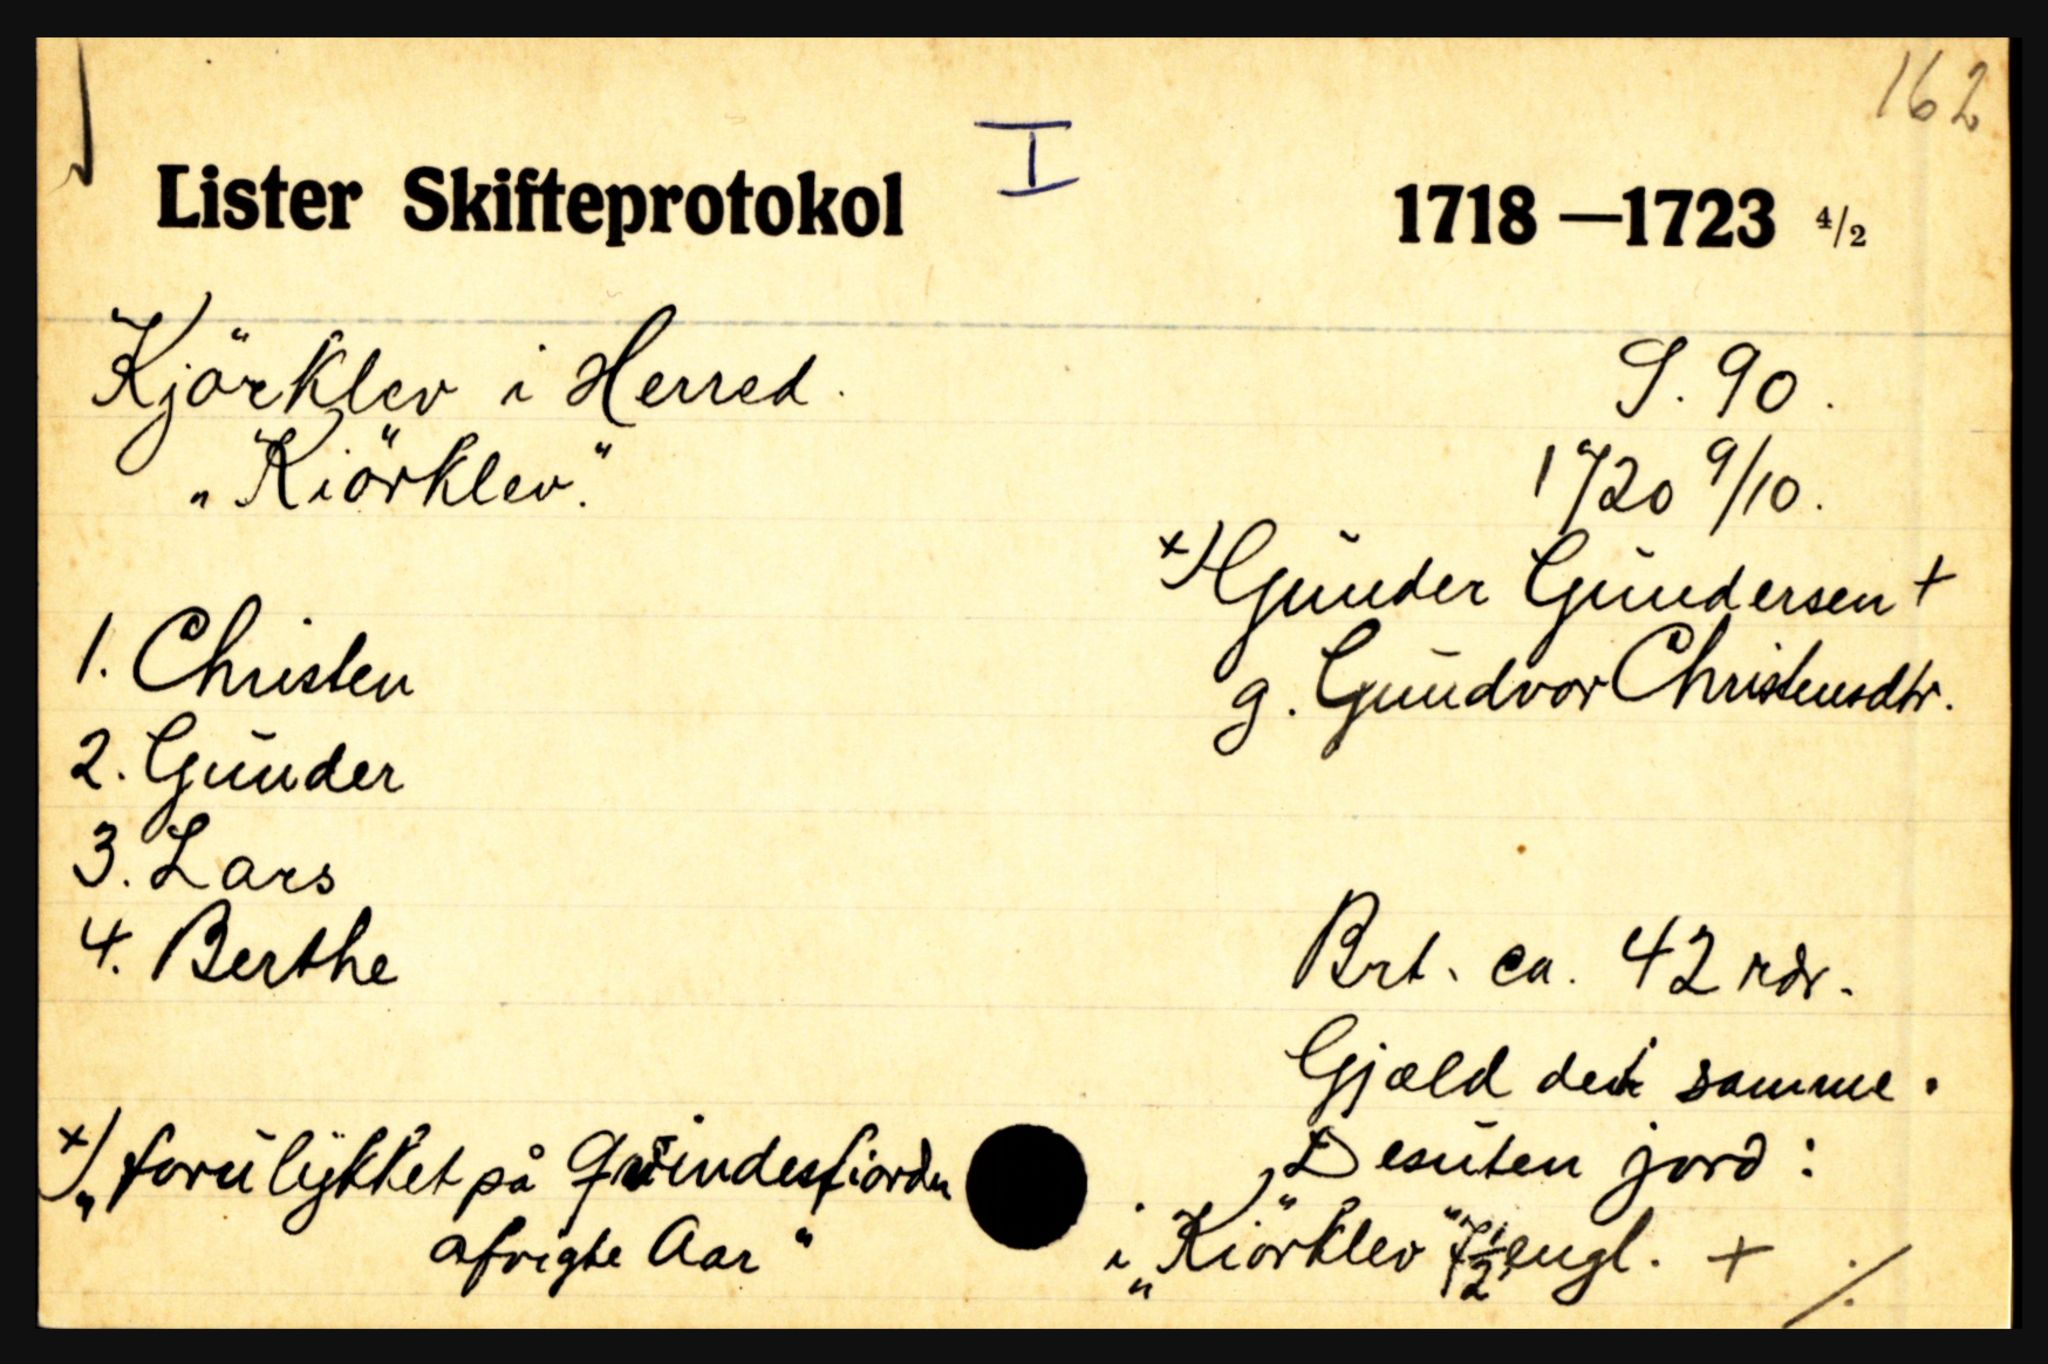 162
I
Lister Skifteprotokol 1718 — 1723 4/2
Kjörklev i Herred. S. 90.
„Kiörklev." 1720 9/10.
x) Gunder Gundersen +
1. Christen g. Gundvor Christensdtr.
2. Gunder
3. Lars
4. Berthe Brt. ca. 42 rdr.
Gjæld det samme.
x) „forulykket på Grindesfiorden Desuten jord:
afvigte Aar" i „Kiörklev" 7 1/2 engl. + ./.